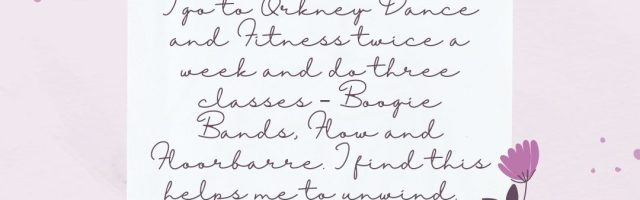 I go to Orkney Dance
and Fitness twice a
week and do three
classes - Boogie
Bands, Flow and
Floorbarre. I find this
helps me to unwind.